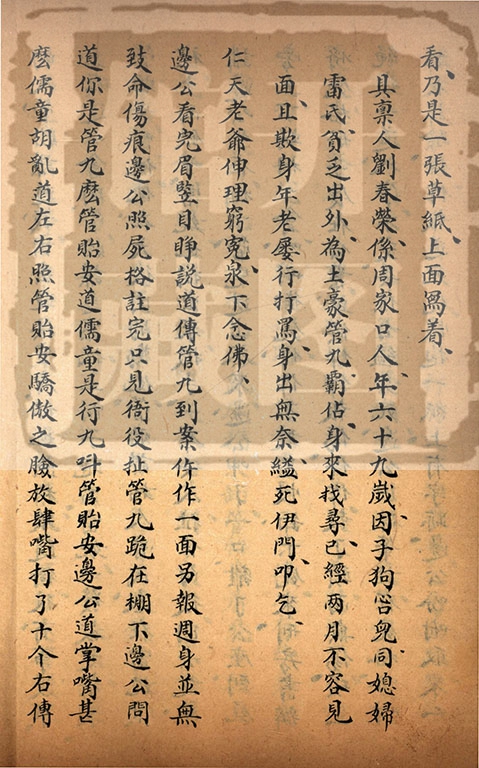 看乃是一張草紙上面寫着
具稟人劉春榮係周家口人年六十九歲因子狗㕾兒同媳婦
雷氏貧乏出外為土豪管九霸佔身來找尋已經兩月不容見
面且欺身年老屡行打罵身出無奈縊死伊門叩乞
仁天老爺伸理窮寃泉下念佛
邊公看完眉竪目睁說道傳管九到案仵作一面另報週身並無
致命傷痕邊公照屍格註完只見衙役扯管九跪在棚下邊公問
道你是管九麽管貽安道儒童是行九呌管貽安邊公道掌嘴甚
麽儒童胡亂道左右照管貽安驕傲之臉放肆嘴打了十个右傳